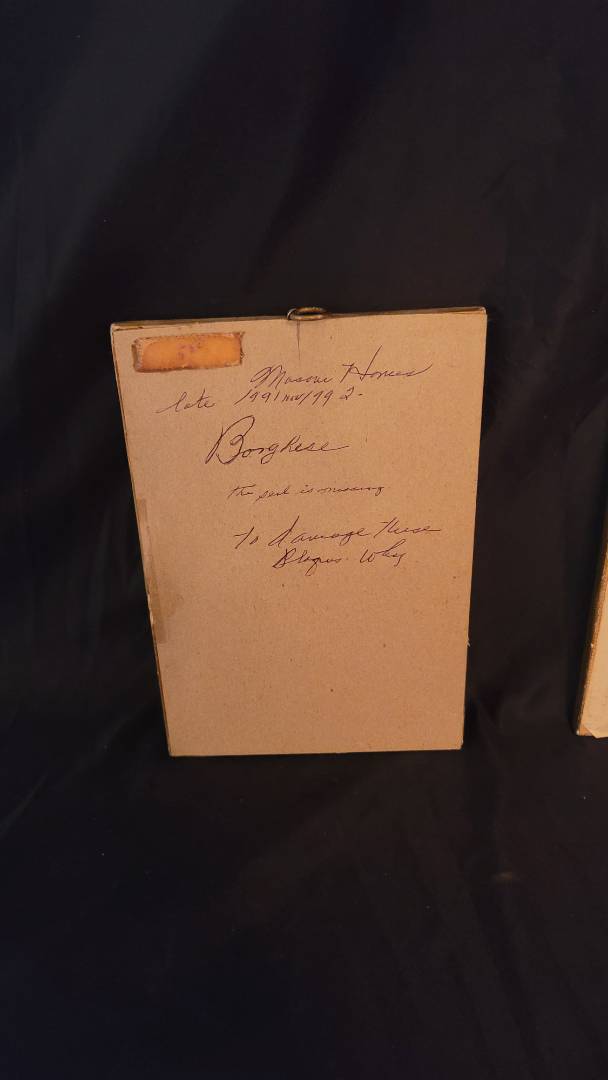 Masonic Homes
late 1991 nov 1992-
Borghese
the seal is missing
to damage these
Plaques. Why